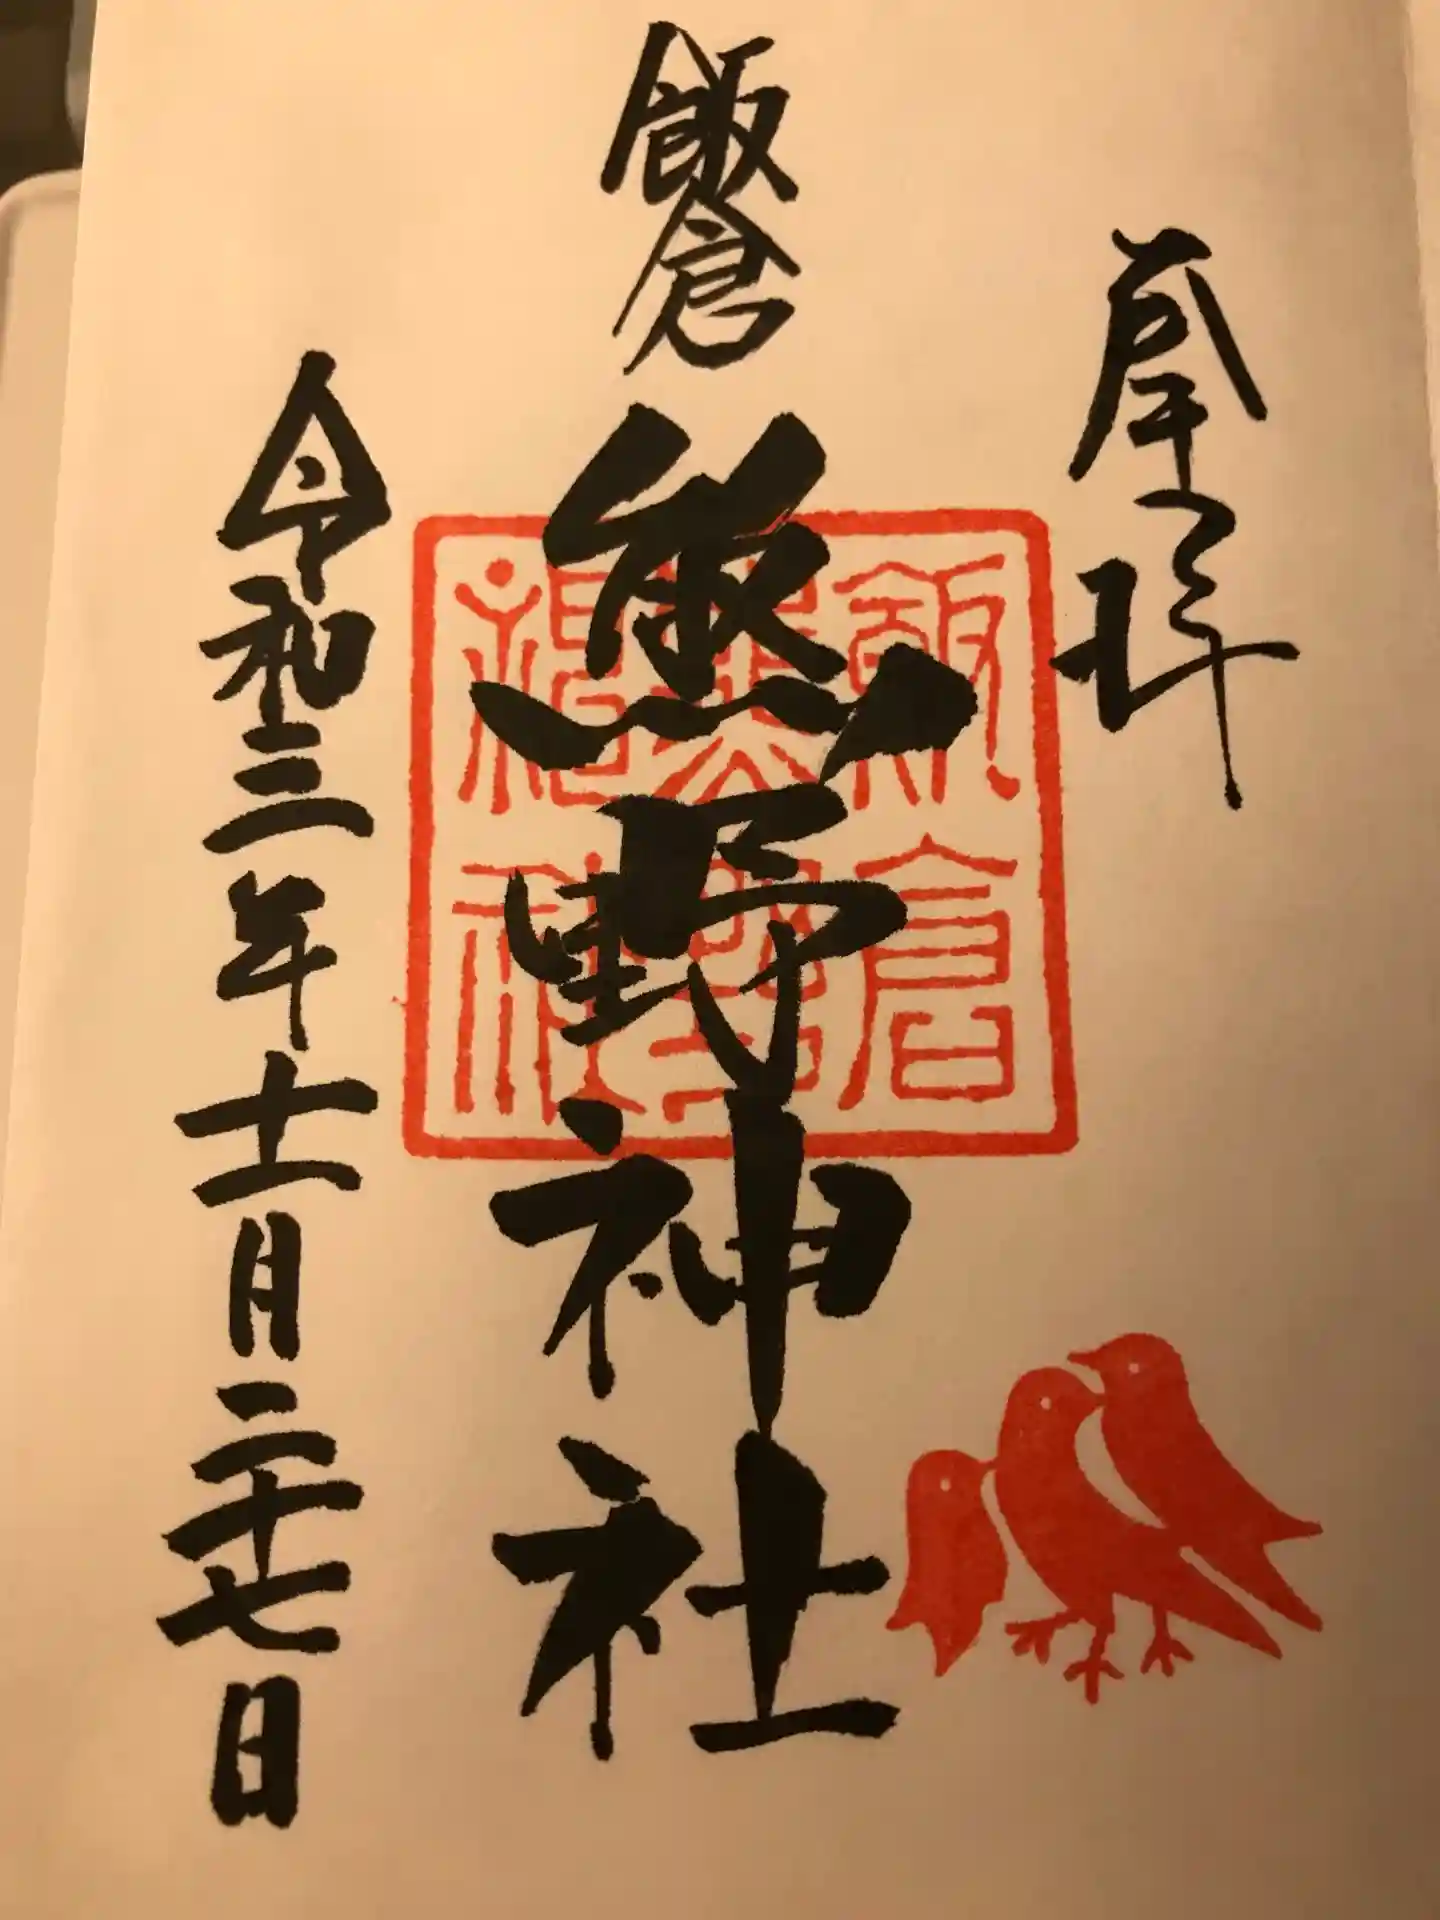 奉拝
飯倉
熊野神社
飯倉
熊野
令和三年十一月二十七日